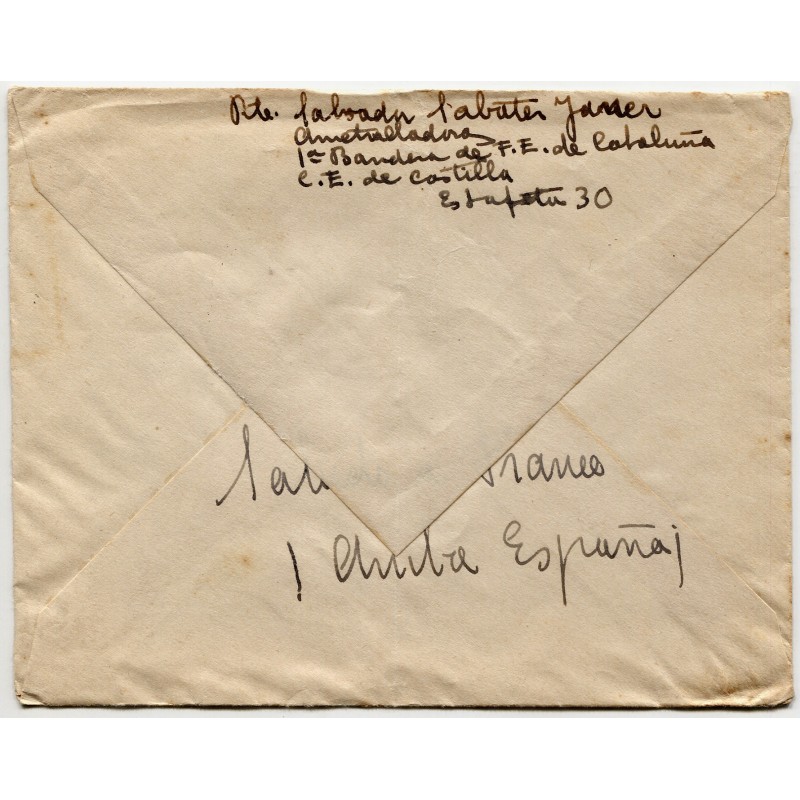 Rte. Salvador Sabater Janer
Ametralladoras
1ª Bandera de F.E. de Cataluña
C.E. de Castilla
Estafeta 30
Franco
¡Arriba España!